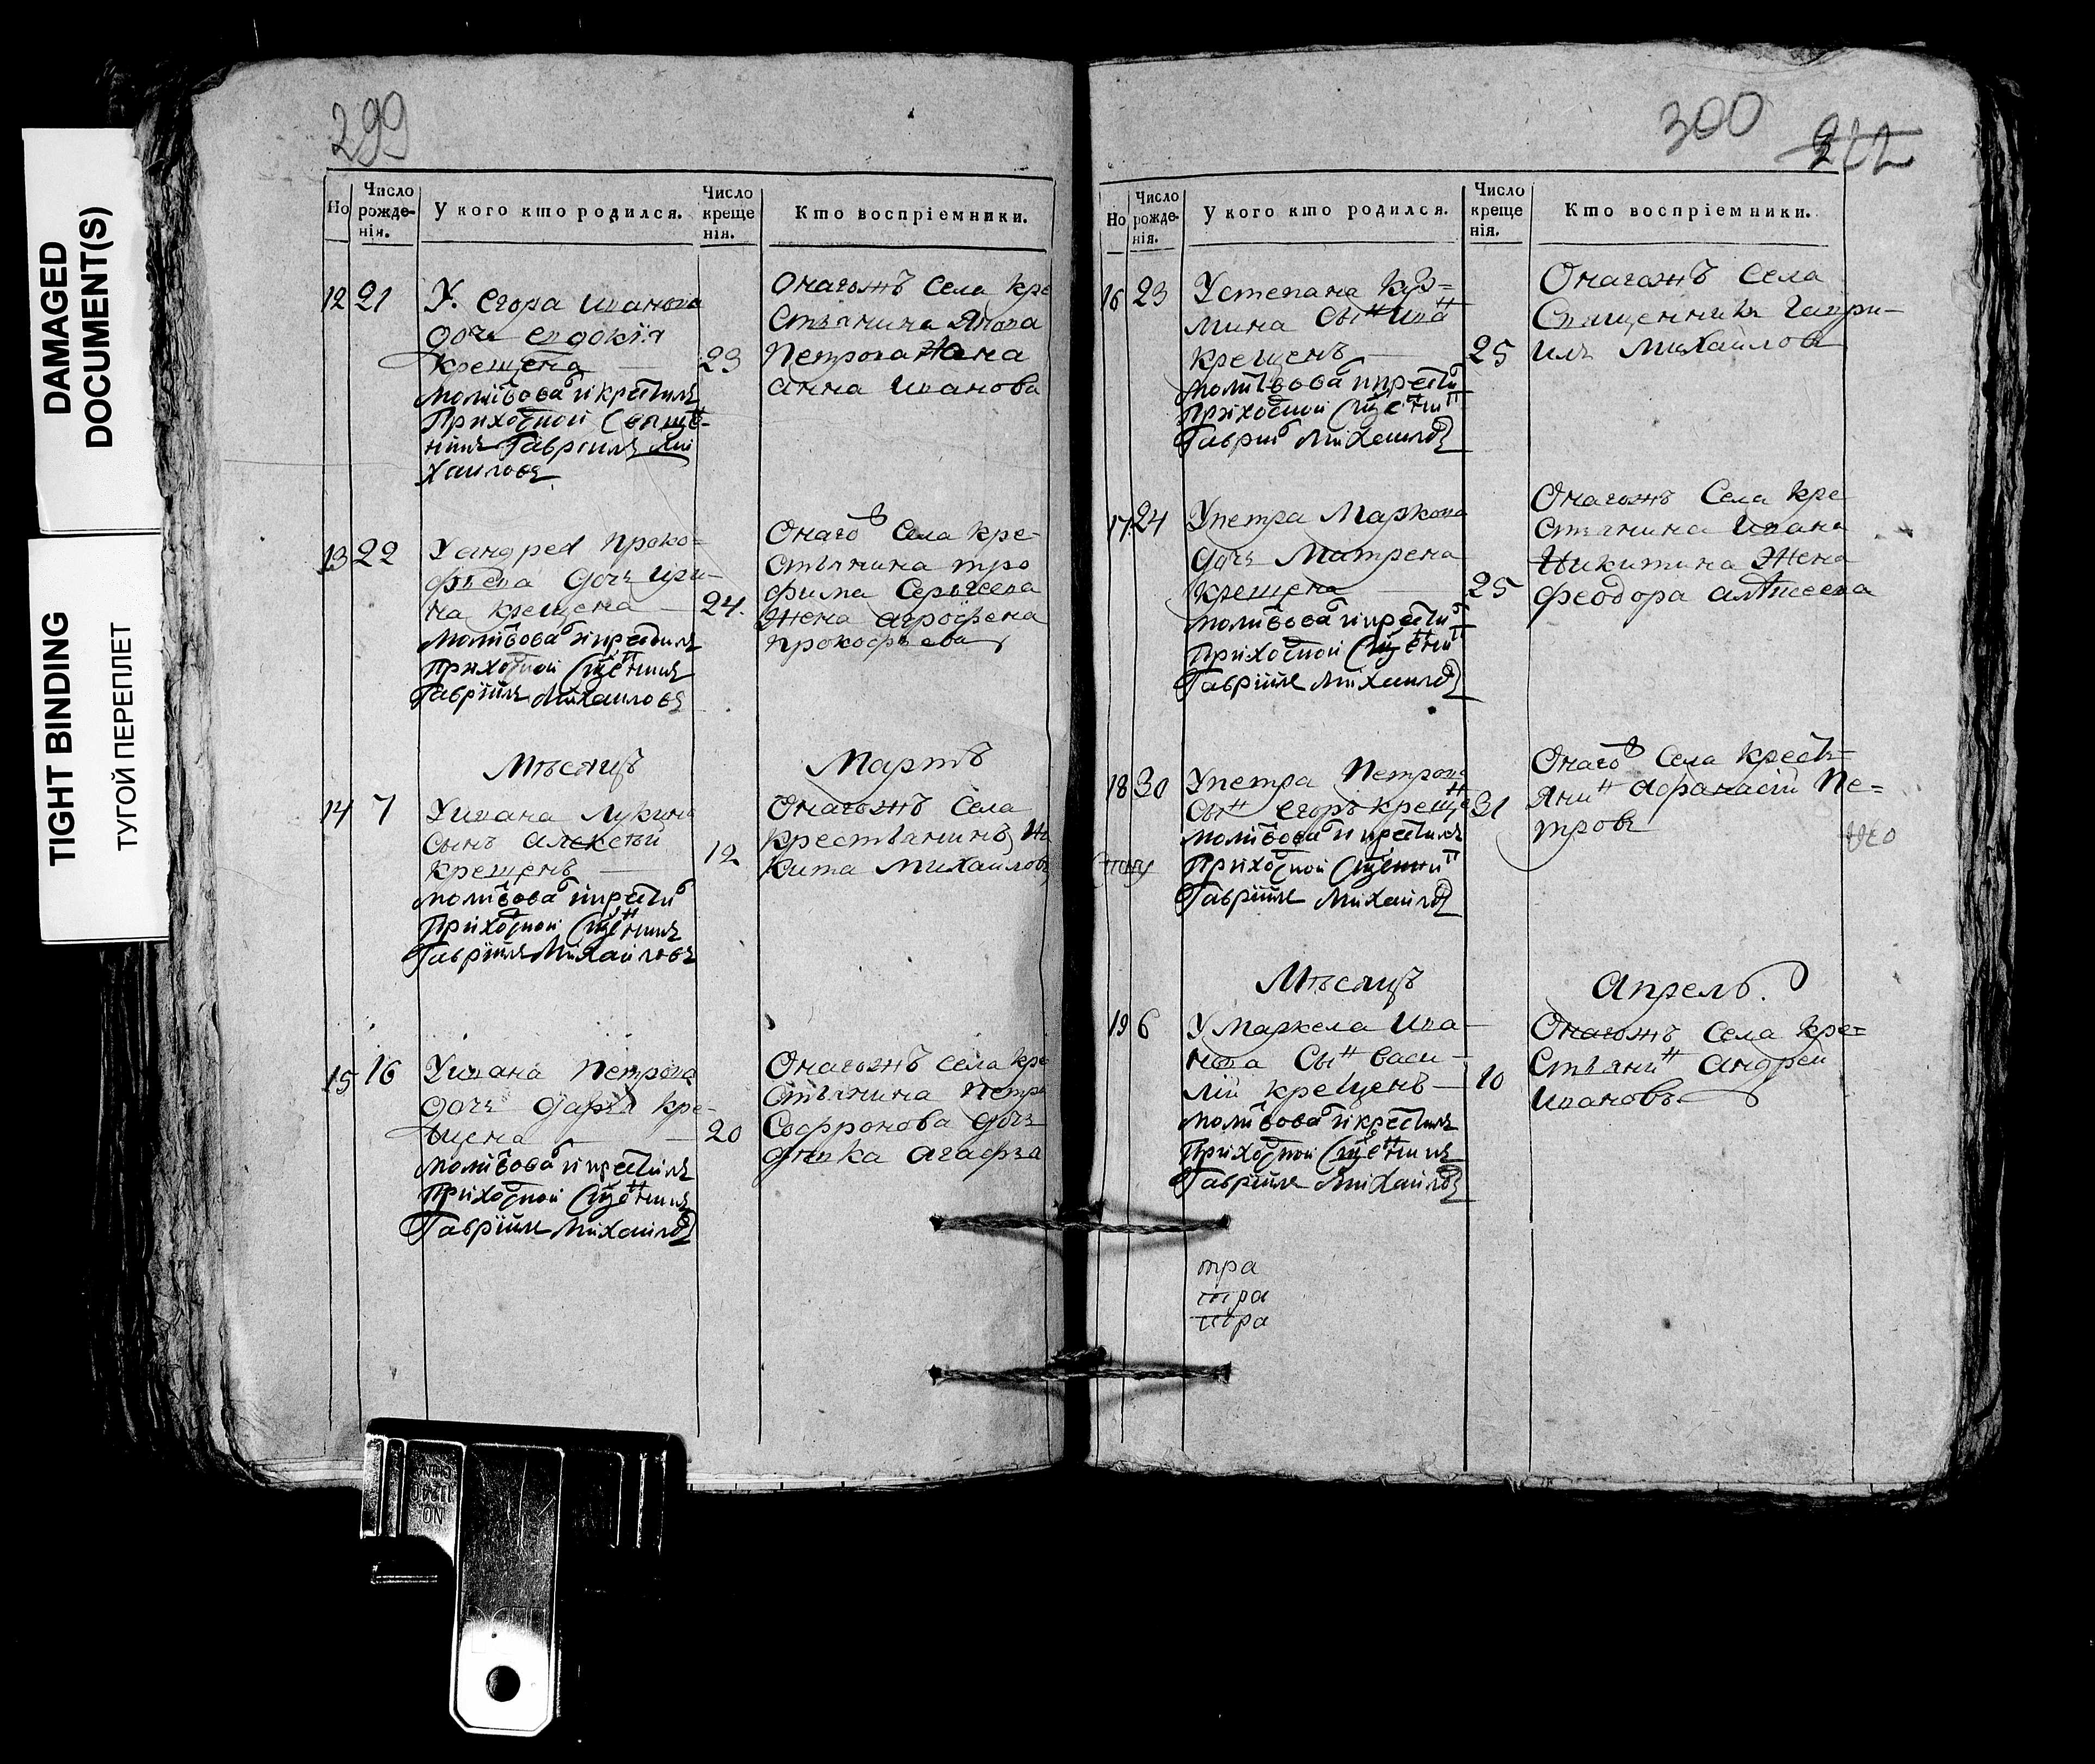 DAMAGED
DOCUMENT(S)
TIGHT BINDING
ТУГОЙ ПЕРЕПЛЕТ
299
Но
Число рожденія.
У кого кто родился.
Число крещенія.
Кто воспріемники.
12 21
У Егора Иванова
дочь Евдокія
крещена
молитвовалъ и крестилъ
Приходной Свяще-
нникъ Гавриилъ Ми
хаиловъ
23
Онагожъ Села кре
стьянина Якова
Петрова жена
Анна Иванова
13 22
У андрея Проко-
фьева дочь Ири-
на крещена
молитвовалъ и крестилъ
Приходной Сщенникъ
Гавріилъ Михаиловъ
24.
Онагожъ Села кре-
стьянина тро
фима Сергеева
жена агрофена
прокофьева
Мѣсяцъ Мартъ
14 7
У ивана Лукина
сынъ алексѣй
крещенъ
молитвовалъ и крестилъ
Приходной Сщенникъ
Гавріилъ Михаиловъ
12
Онагожъ Села
крестьянинъ Ни
кита Михайловъ
15 16
У ивана Петрова
дочь дарья кре-
щена
молитвовалъ и крестилъ
Приходной Сщенникъ
Гавріилъ Михаиловъ
20
Онагожъ села кре
стьянина Петра
Софронова дочь
дѣвка агафья
300
222
Но
Число рожденія.
У кого кто родился.
Число крещенія.
Кто воспріемники.
16 23
У степана Куз-
мина Сынъ Иванъ
крещенъ
молитвовалъ и крестилъ
Приходной Сщенникъ
Гавриилъ Михаиловъ
25
Онагожъ Села
Священникъ Гаври-
илъ Михайловъ
17 24
У петра Маркова
дочь Матрена
крещена
молитвовалъ и крестилъ
Приходной Сщенникъ
Гавріилъ Михаиловъ
25
Онагожъ Села кре
стьянина Ивана
Никитина жена
феодора алексеева
18 30
У петра Петрова
Сынъ Егоръ крещенъ
молитвовалъ и крестилъ
Приходной Сщенникъ
Гавріилъ Михаиловъ
31
Онагожъ Села кресть-
янинъ афанасій Пе-
тровъ
Мѣсяцъ Апрель.
19 6
У Маркела Ива-
нова Сынъ Васи-
лій крещенъ
молитвовалъ и крестилъ
Приходной Сщенникъ
Гавріилъ Михаиловъ
10
Онагожъ Села кре-
стьянинъ андрей
Ивановъ